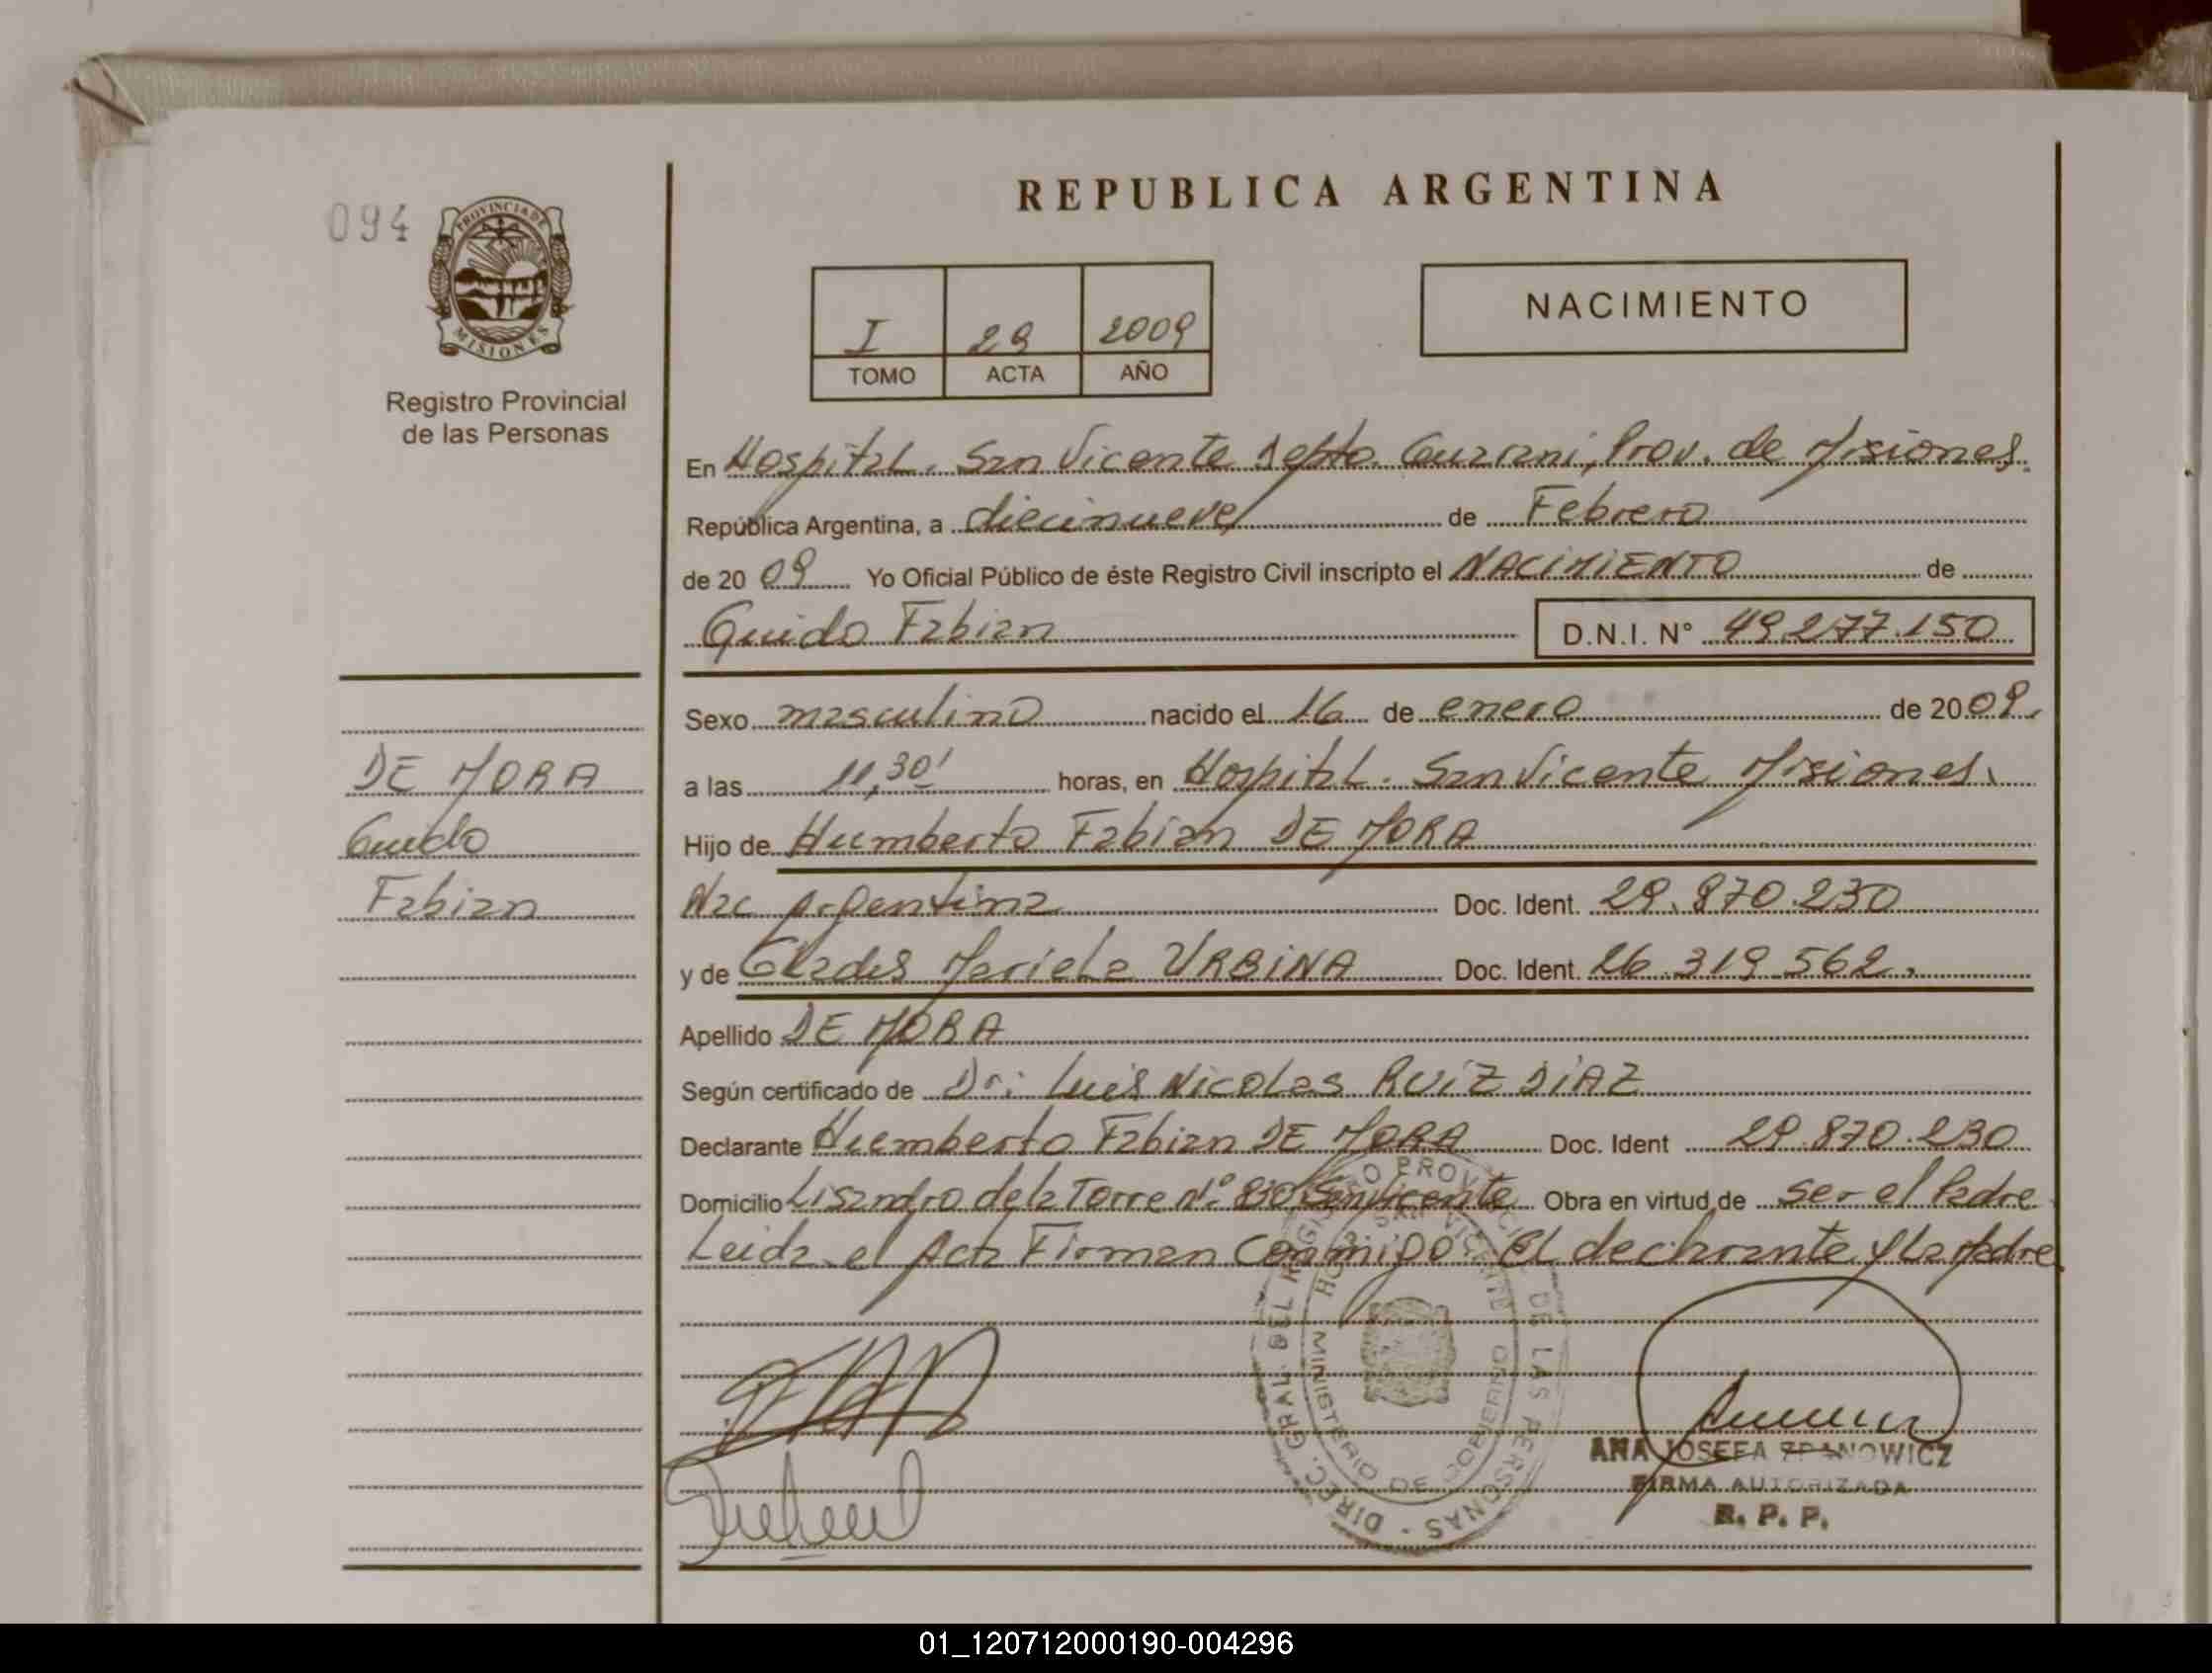 094
PROVINCIA DE
MISIONES
Registro Provincial
de las Personas
REPUBLICA ARGENTINA
I 29 2009
TOMO ACTA AÑO
NACIMIENTO
En Hospital. San Vicente Depto. Guarani, Prov. de Misiones.
República Argentina, a diecinueve de Febrero
de 20 09 Yo Oficial Público de éste Registro Civil inscripto el NACIMIENTO de
Guido Fabian D.N.I. N° 49.277.150
Sexo masculino nacido el 16 de enero de 20 09.
a las 11,30' horas, en Hospital. San Vicente Misiones.
Hijo de Humberto Fabian DE MORA
Nac Argentina Doc. Ident. 29.870.230
y de Glades Mariela URBINA Doc. Ident. 26.319.562.
Apellido DE MORA
Según certificado de Dr: Luis Nicolas RUIZ DIAZ
Declarante Humberto Fabian DE MORA Doc. Ident 29.870.230
Domicilio Lisandro de la Torre N° 830 San Vicente Obra en virtud de ser el Padre
Leida el Acta Firman Conmigo. El declarante y la Madre
DE MORA
Guido
Fabian
DIREC. GRAL. DEL REGISTRO PROVINCIAL DE LAS PERSONAS
MINISTERIO DE GOBIERNO
SAN VICENTE
ANA JOSEFA
FIRMA AUTORIZADA
R. P. P.
01_120712000190-004296